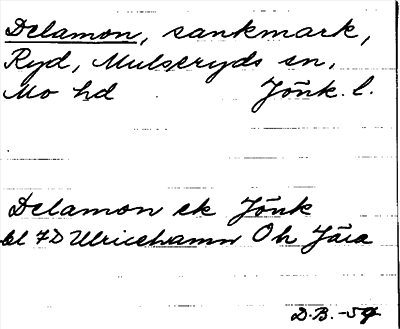 Delamon, sankmark,
Ryd, Mulseryds sn,
Mo hd Jönk. l.
Delamon ek Jönk
bl 7D Ulricehamn Oh Jära
D.B.-59